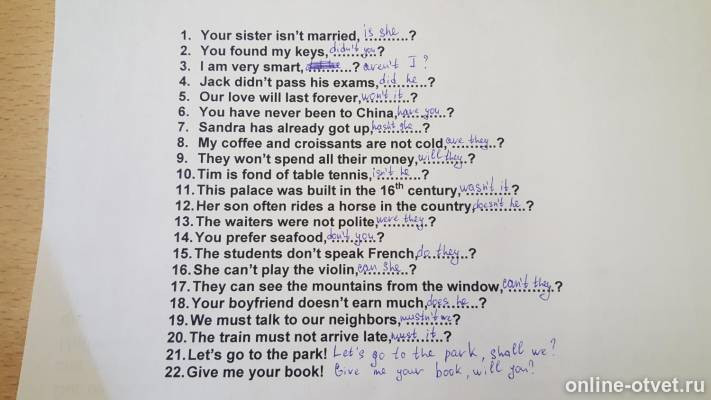 1. Your sister isn't married, is she...?
2. You found my keys, didn't you...?
3. I am very smart, ...........? aren't I?
4. Jack didn't pass his exams, did he...?
5. Our love will last forever, won't it...?
6. You have never been to China, have you...?
7. Sandra has already got up, hasn't she...?
8. My coffee and croissants are not cold, are they...?
9. They won't spend all their money, will they...?
10. Tim is fond of table tennis, isn't he...?
11. This palace was built in the 16th century, wasn't it...?
12. Her son often rides a horse in the country, doesn't he...?
13. The waiters were not polite, were they...?
14. You prefer seafood, don't you...?
15. The students don't speak French, do they...?
16. She can't play the violin, can she...?
17. They can see the mountains from the window, can't they...?
18. Your boyfriend doesn't earn much, does he...?
19. We must talk to our neighbors, mustn't we...?
20. The train must not arrive late, must it...?
21. Let's go to the park! Let's go to the park, shall we?
22. Give me your book! Give me your book, will you?
online-otvet.ru